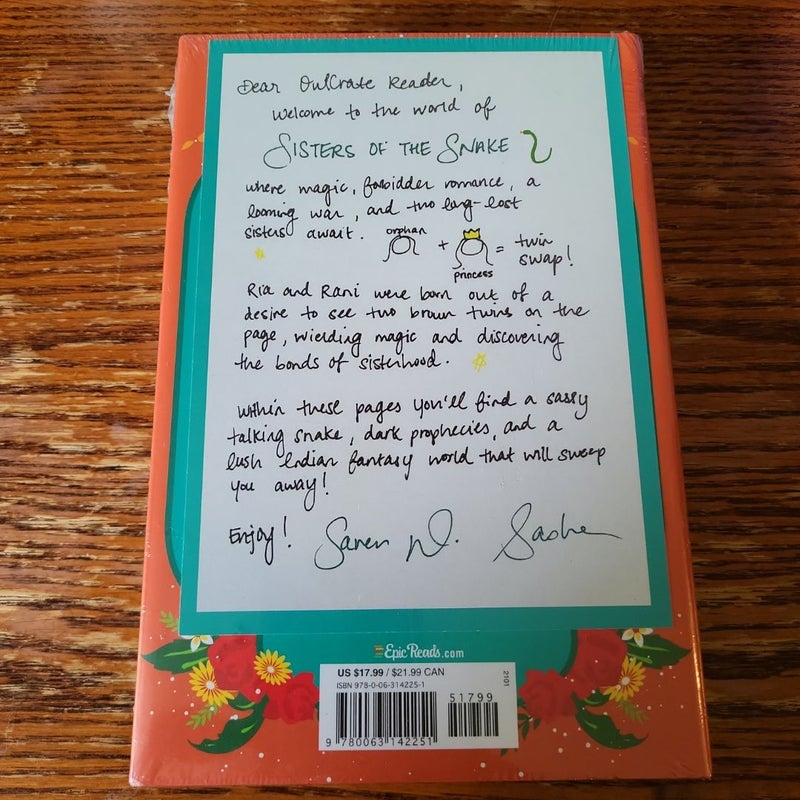 Dear OwlCrate Reader,
welcome to the world of
SISTERS OF THE SNAKE
where magic, forbidden romance, a
looming war, and two long-lost
sisters await.
orphan
+
princess
= twin
swap!
Ria and Rani were born out of a
desire to see two brown twins on the
page, wielding magic and discovering
the bonds of sisterhood.
Within these pages you'll find a sassy
talking snake, dark prophecies, and a
lush Indian fantasy world that will sweep
you away!
Enjoy!
Sasha
EpicReads.com
US $17.99 / $21.99 CAN
ISBN 978-0-06-314225-1
51799
2101
9 780063 142251